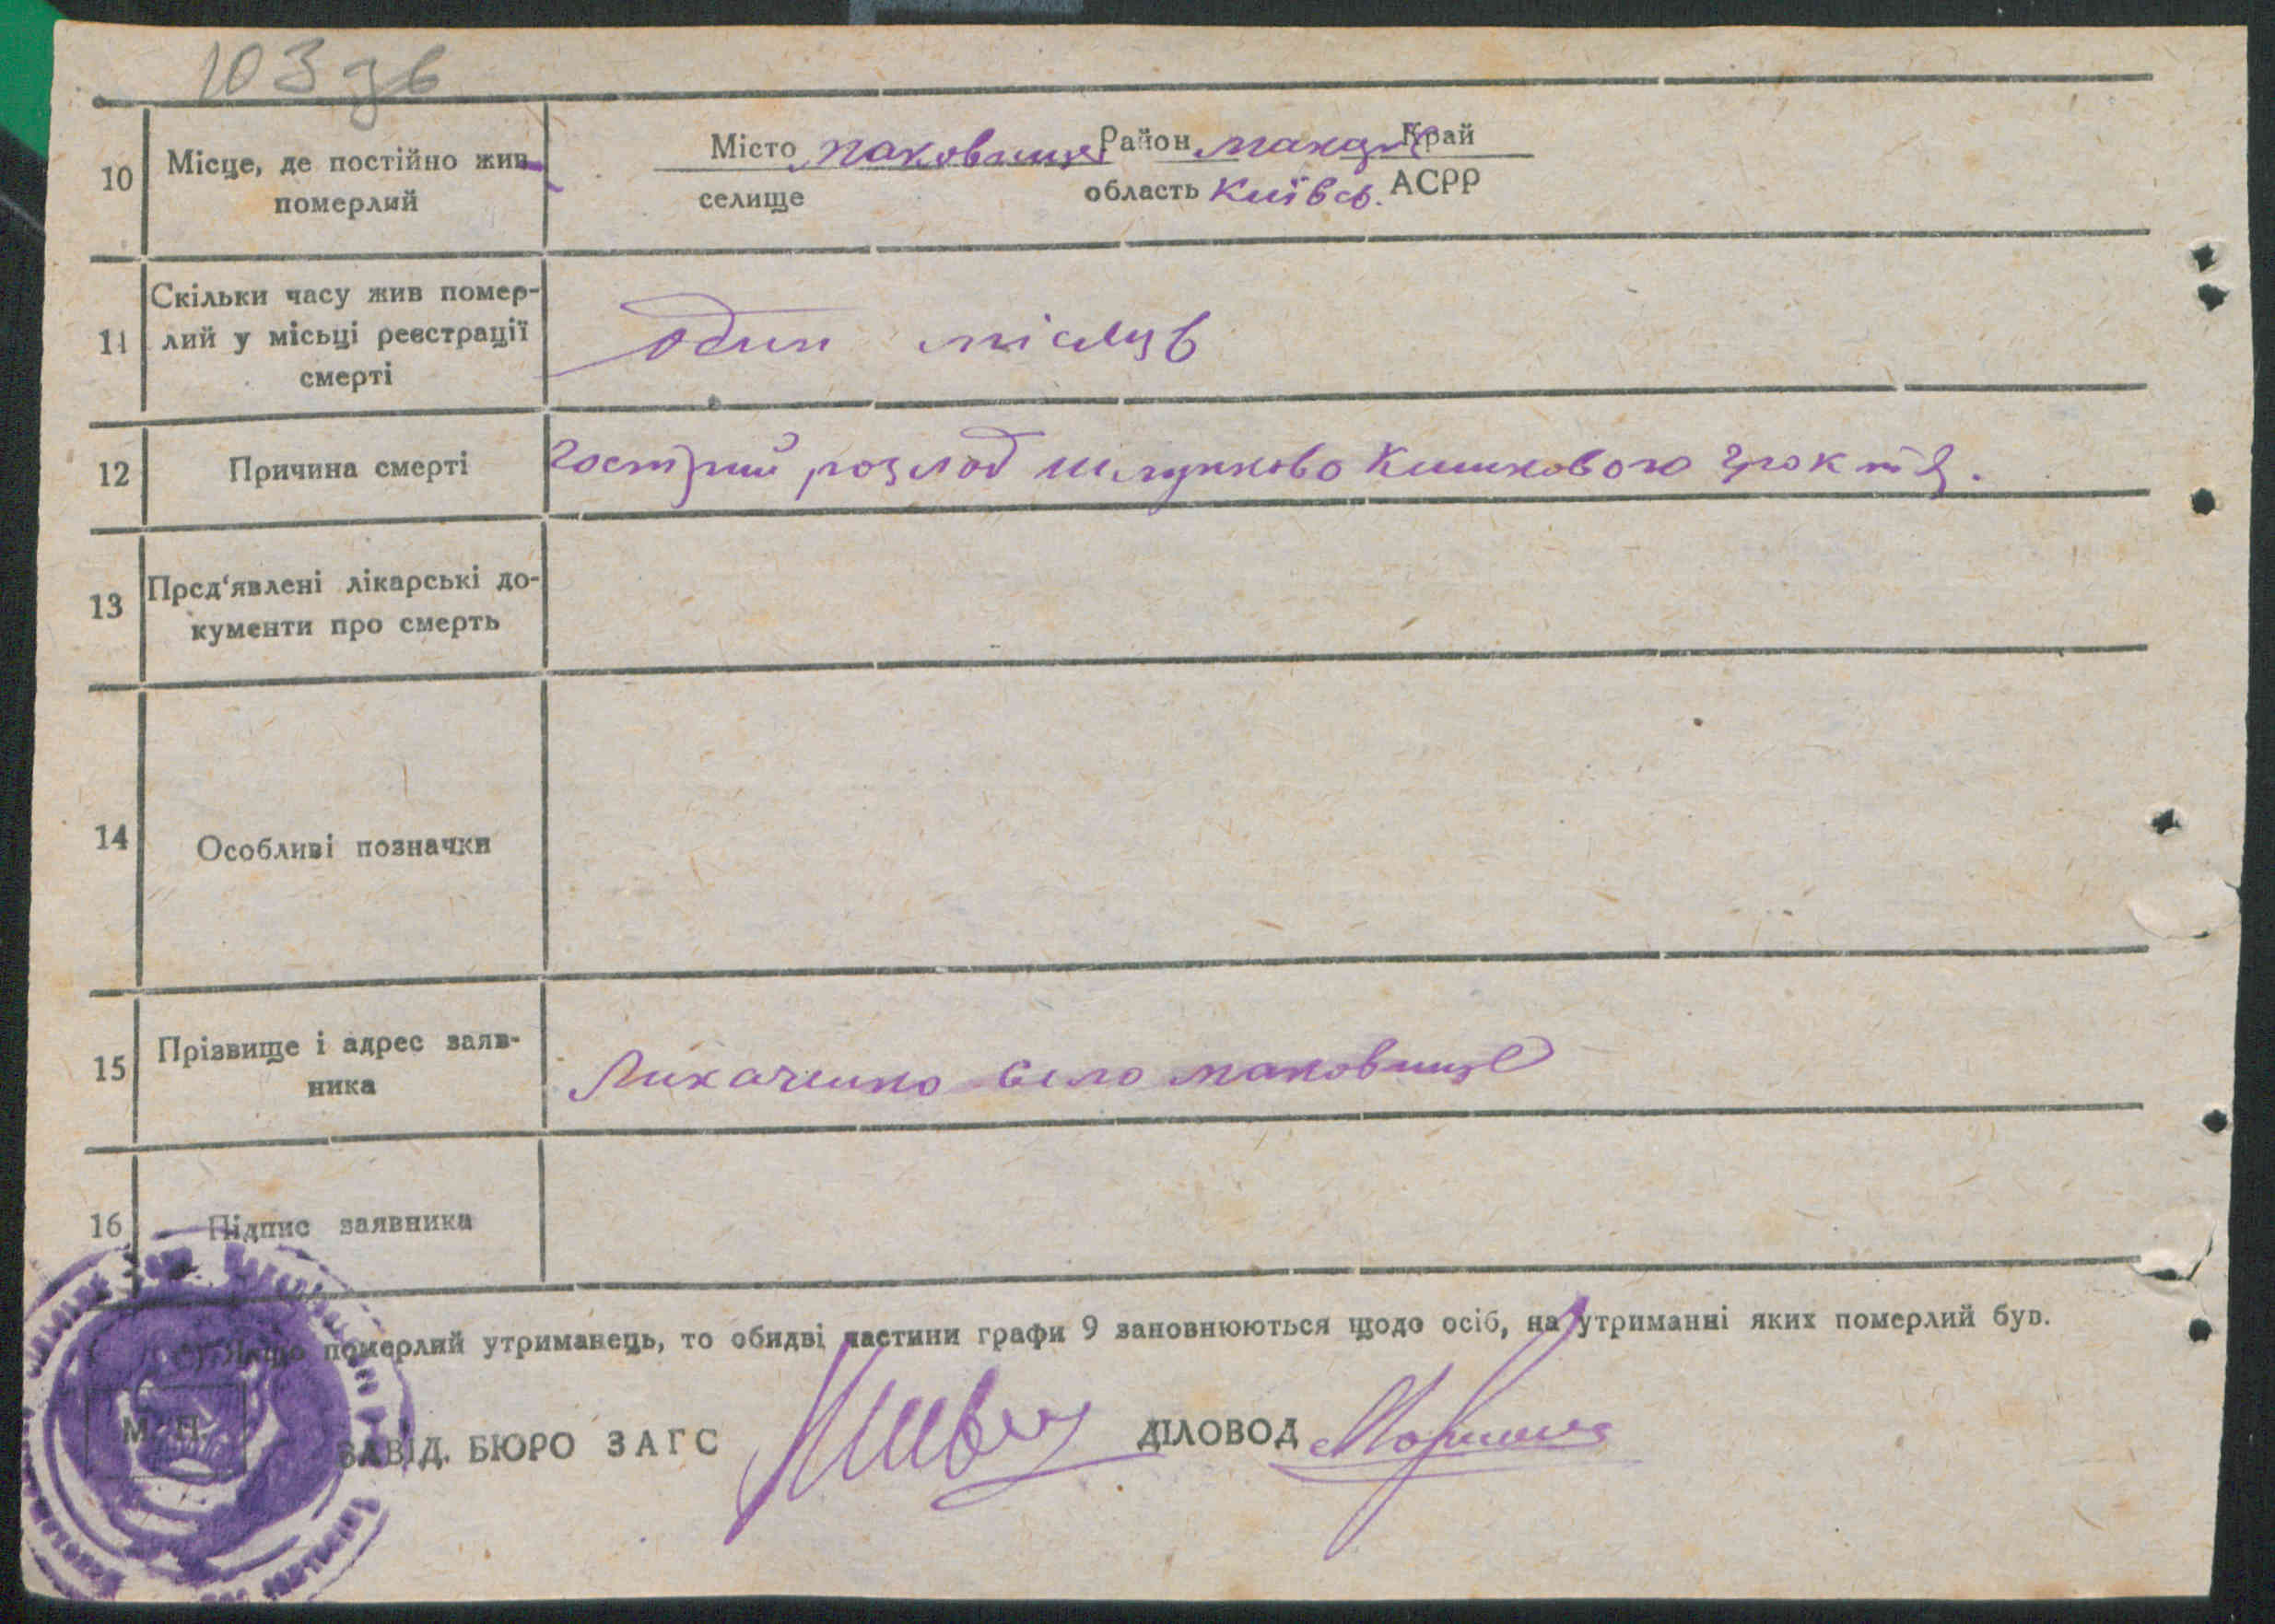 103 зв
10 Місце, де постійно жив померлий
Місто Маковище Район Макар Край
селище область Київсь. АСРР
11 Скільки часу жив помер-
лий у місьці реєстрації
смерті
Один місяць
12 Причина смерті Гострий розлад шлунково Кишкового тракта.
13 Пред'явлені лікарські до-
кументи про смерть
14 Особливі позначки
15 Прізвище і адрес заяв-
ника
Лихаченко село маковище
16 Підпис заявника
*) Якщо померлий утриманець, то обидві частини графи 9 заповнюються щодо осіб, на утриманні яких померлий був.
М. П.
ЗАВІД. БЮРО ЗАГС ДІЛОВОД